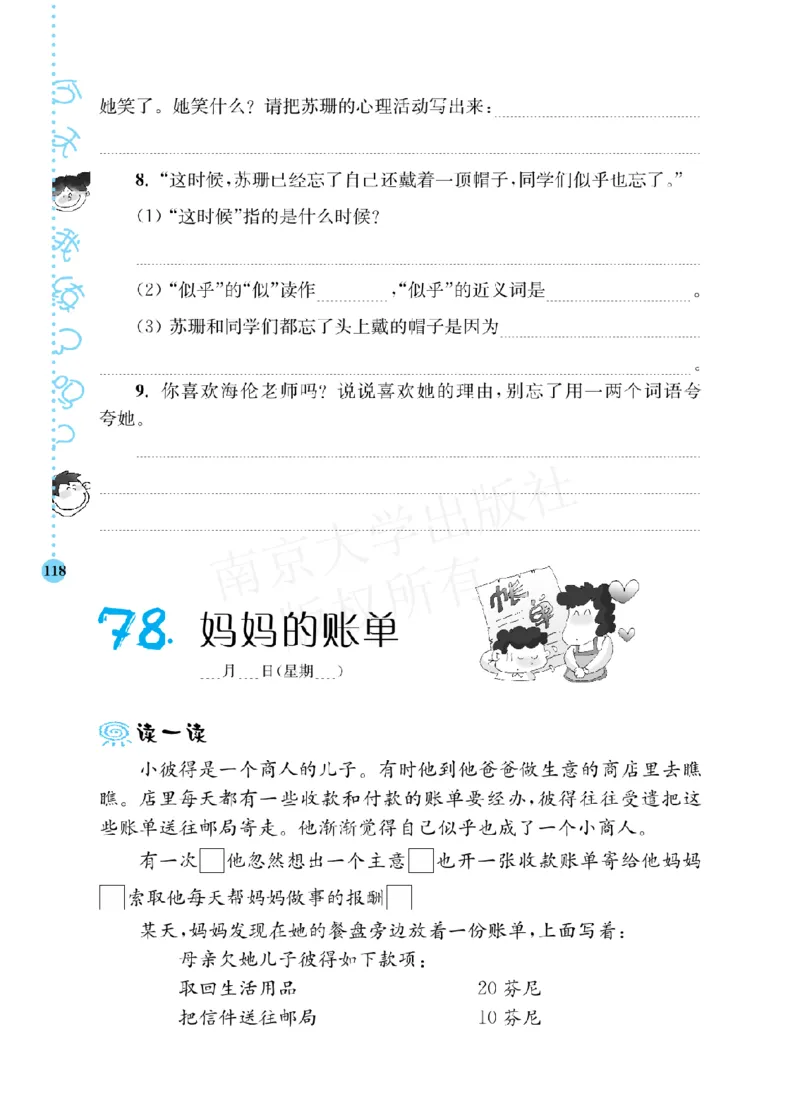 她笑了。她笑什么？请把苏珊的心理活动写出来：
8. “这时候，苏珊已经忘了自己还戴着一顶帽子，同学们似乎也忘了。”
（1）“这时候”指的是什么时候？
（2）“似乎”的“似”读作，“似乎”的近义词是。
（3）苏珊和同学们都忘了头上戴的帽子是因为
。
9. 你喜欢海伦老师吗？说说喜欢她的理由，别忘了用一两个词语夸
夸她。
118
南京大学出版社
版权所有
78. 妈妈的账单
帐单
月 日（星期 ）
读一读
小彼得是一个商人的儿子。有时他到他爸爸做生意的商店里去瞧
瞧。店里每天都有一些收款和付款的账单要经办，彼得往往受遣把这
些账单送往邮局寄走。他渐渐觉得自己似乎也成了一个小商人。
有一次□他忽然想出一个主意□也开一张收款账单寄给他妈妈
□索取他每天帮妈妈做事的报酬□
某天，妈妈发现在她的餐盘旁边放着一份账单，上面写着：
母亲欠她儿子彼得如下款项：
取回生活用品 20 芬尼
把信件送往邮局 10 芬尼